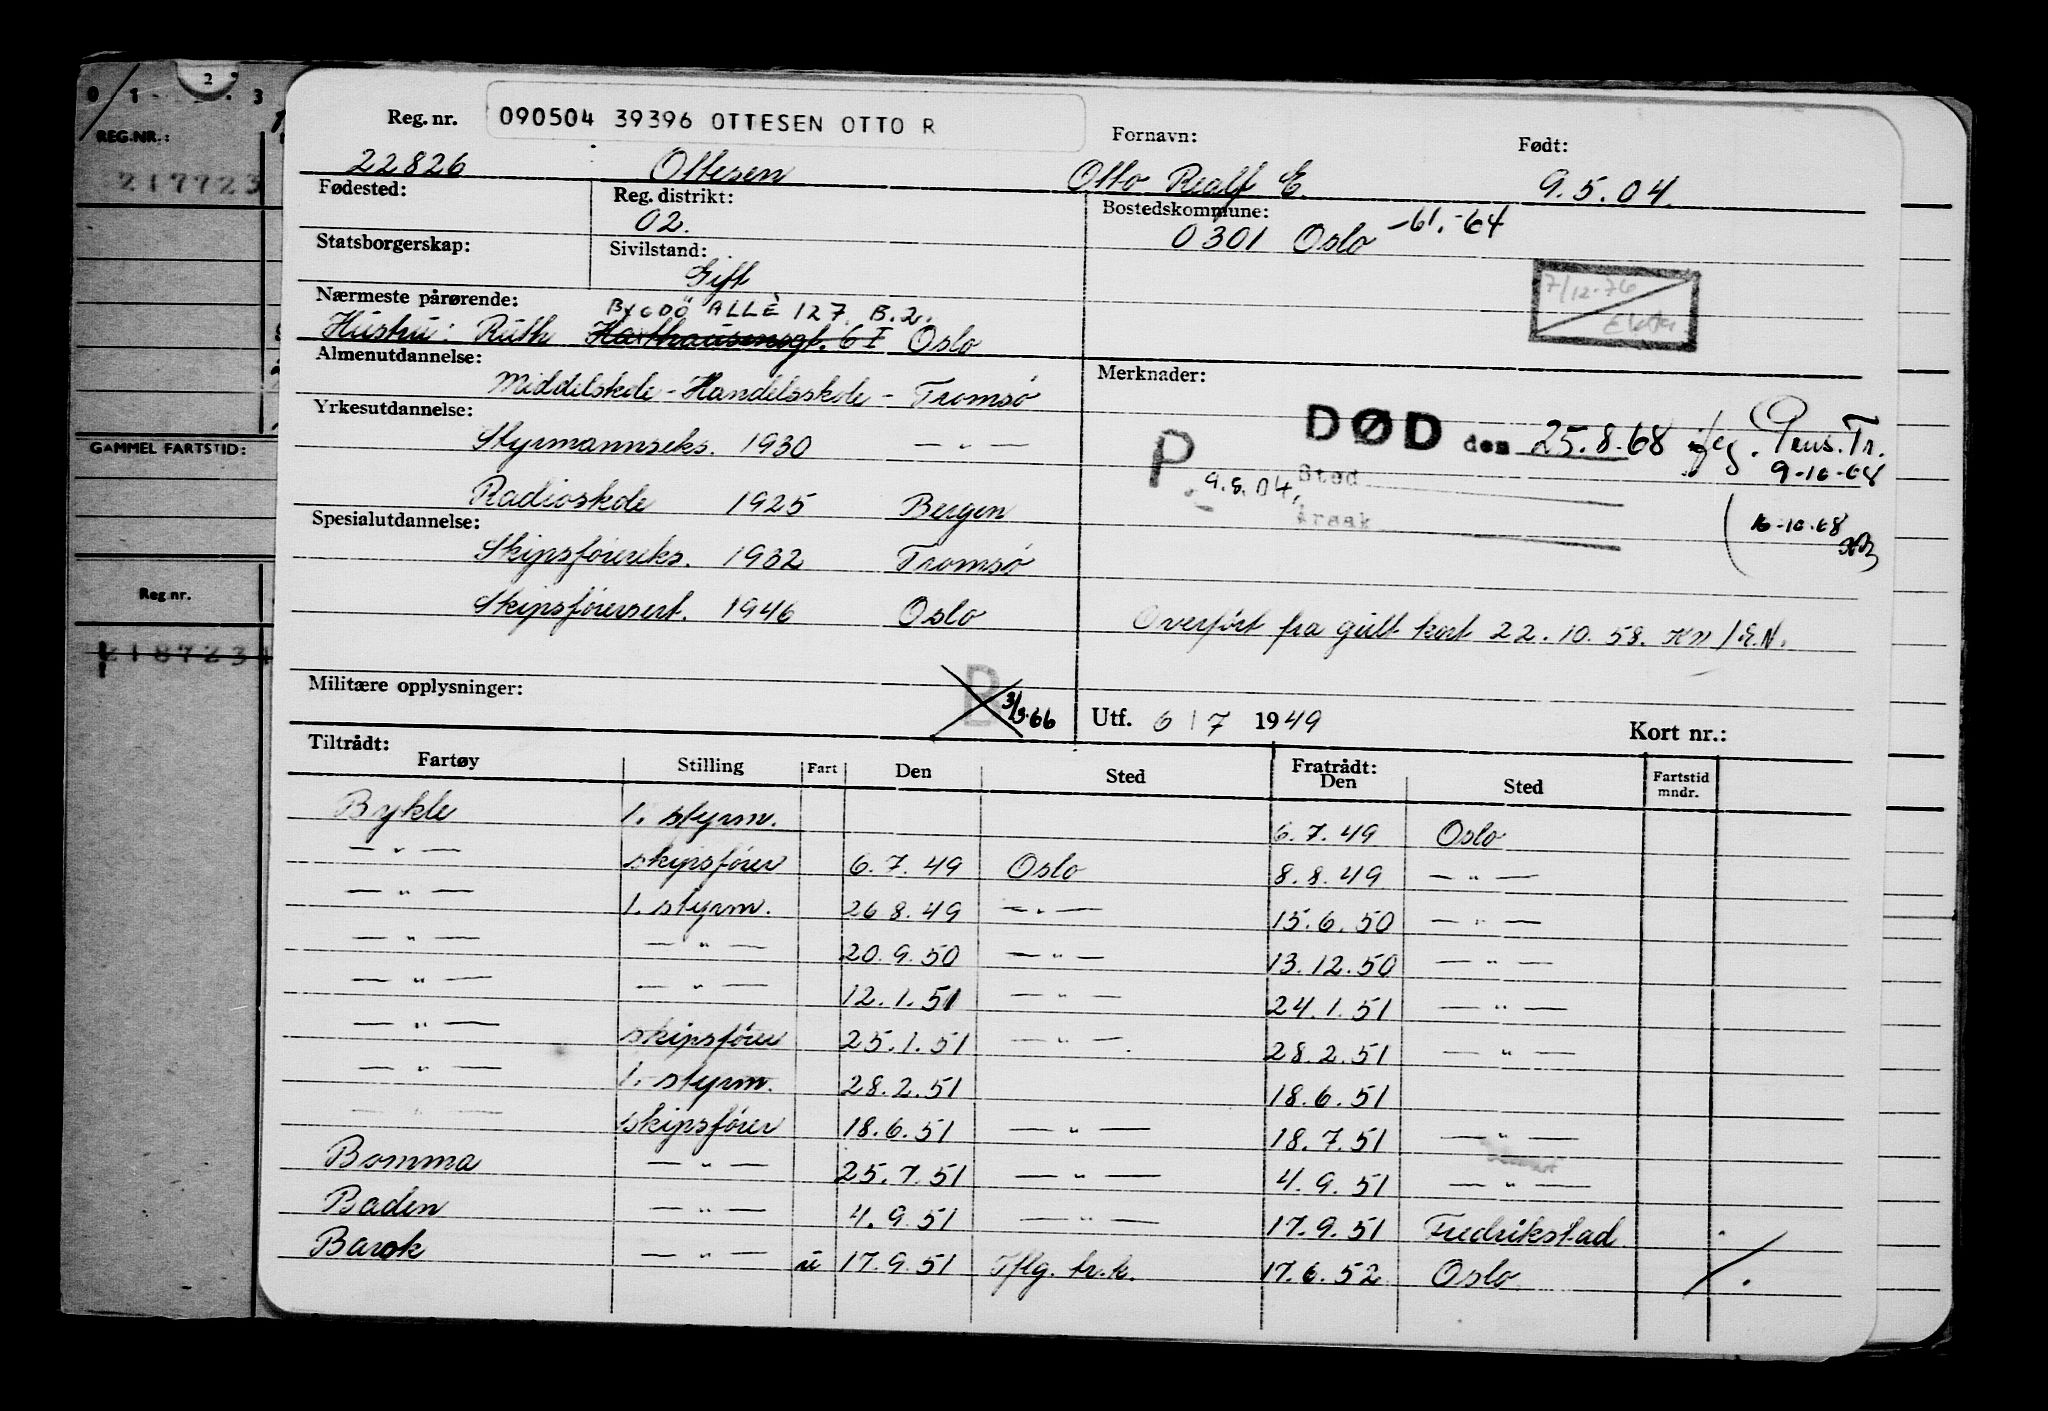 0 1 2 3
REG.NR.:
217723
GAMMEL FARTSTID:
Reg.nr.
218723
Reg. nr. 090504 39396 OTTESEN OTTO R Fornavn: Født:
22826 Ottesen Otto Realf E. 9.5.04.
Fødested: Reg. distrikt: Bostedskommune:
02. 0301 Oslo -61.-64
Statsborgerskap: Sivilstand:
Gift
7/12-76
Nærmeste pårørende: BYGDÖ ALLÈ 127. B.2.
Hustru: Ruth Haxthausensgt. 6 I Oslo
Almenutdannelse: Merknader:
Middelskole - Handelsskole - Tromsø
Yrkesutdannelse:
DØD den 25.8.68 iflg. Pens.Tr.
9-10-68
Styrmannseks. 1930 — " —
P 9.5.04, Sted
Årsak
Radioskole 1925 Bergen
16-10-68
Spesialutdannelse:
Skipsførereks. 1932 Tromsø
Skipsførersert. 1946 Oslo
Overført fra gult kort 22.10.58. KN/E.N.
Militære opplysninger: B 3/3-66 Utf. 6/7 1949 Kort nr.:
Tiltrådt: Fratrådt:
Fartøy Stilling Fart Den Sted Den Sted Fartstid mndr.
Bykle 1. styrm. 6.7.49 Oslo
— " — skipsfører 6.7.49 Oslo 8.8.49 — " —
— " — 1. styrm. 26.8.49 — " — 15.6.50 — " —
— " — — " — 20.9.50 — " — 13.12.50 — " —
— " — — " — 12.1.51 — " — 24.1.51 — " —
— " — skipsfører 25.1.51 — " — 28.2.51 — " —
— " — 1. styrm. 28.2.51 18.6.51
— " — skipsfører 18.6.51 — " — 18.7.51 — " —
Bomma — " — 25.7.51 — " — 4.9.51 — " —
Baden — " — 4.9.51 — " — 17.9.51 Fredrikstad
Barok — " — u 17.9.51 Iflg. tr.k. 17.6.52 Oslo